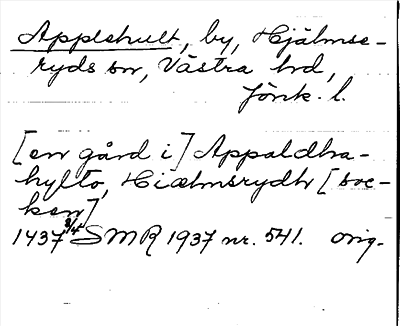 Applehult, by, Hjälmse-
ryds sn, Västra hd,
Jönk. l.
[en gård i] Appaldha-
hylto, Hiælmsrydh [soc-
ken]
1437 3/4 SMR 1937 nr. 541. orig.